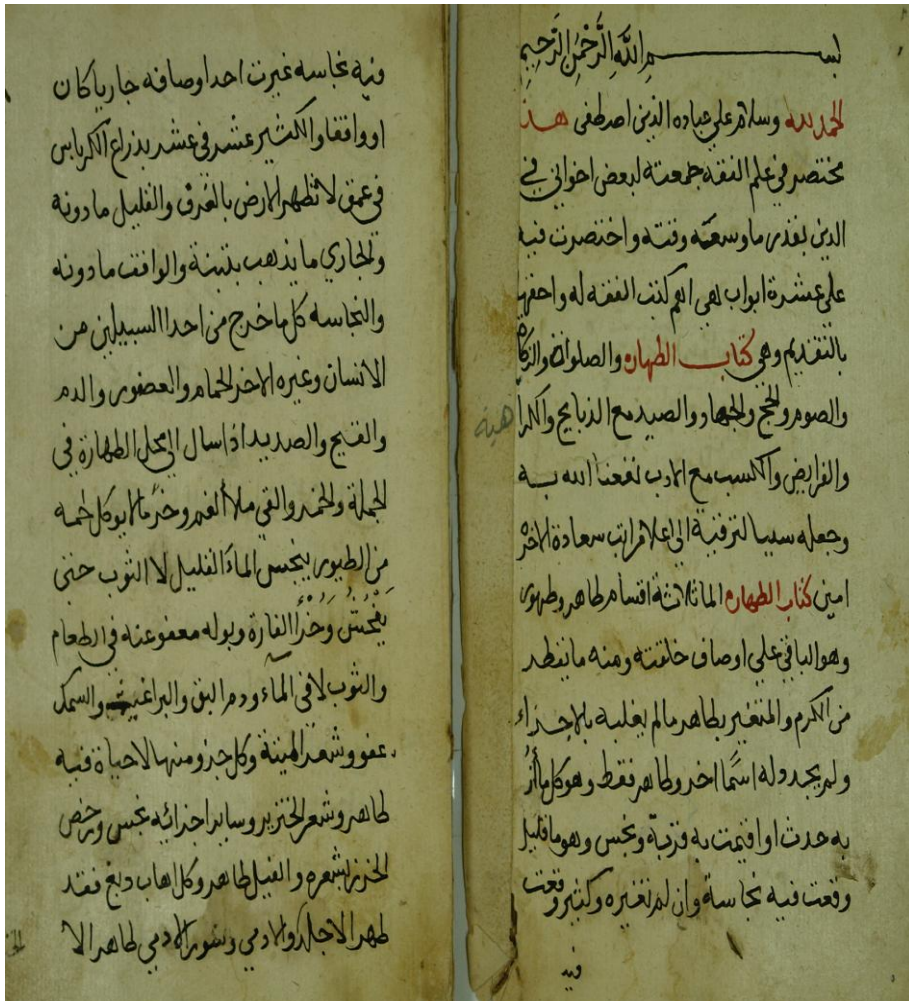 بسم الله الرحمن الرحيم
الحمد لله وسلام على عباده الذين اصطفى هذا
مختصر في علم الفقه جمعته لبعض اخواني في
الدين بقدر ما وسعه وقته واختصرت فيه
على عشرة ابواب هي اهم كتب الفقه له واحقها
بالتقديم وهي كتاب الطهاره والصلوة والزكاة
والصوم والحج والجهاد والصيد مع الذبايح والكرا
هية
والفرايض والكسب مع الادب نفعنا الله به
وجعله سببا لترقية الى اعلا مراتب سعادة الاخرة
امين كتاب الطهاره الما ثلاثة اقسام طاهر وطهور
وهو الباقي على اوصاف خلقته ومنه ما يقطر
من الكرم والمتغير بطاهر مالم يغلبه بالاجزاء
ولم يجدد له اسما اخر وطاهر فقط وهو كل ما أز
به حدث او اقيمت به قربة ونجس وهو ما قليل
وقعت فيه نجاسة وان لم تغيره وكثير وقعت
فيه
فيه نجاسه غيرت احد اوصافه جاريا كان
او واقفا والكثير عشر في عشر بذراع الكرباس
في عمق لا تظهر الارض بالغرف والقليل ما دونه
والجاري ما يذهب بتبنة والواقف ما دونه
والنجاسه كل ما خرج من احدا السبيلين من
الانسان وغيره الا خر الحمام والعصفور والدم
والقيح والصديد اذا سال الى محل الطهارة في
الجملة والخمر والقي ملأ الفم وخر ما لا يوكل لحمه
من الطيور ينجس الماء القليل لا الثوب حتى
يفحش وخرأ الفارة وبوله معفو عنه في الطعام
والثوب لا في الماء ودم البق والبراغيث والسمك
عفو وشعر الميتة وكل جزو منها لا حياة فيه
طاهر وشعر الخنزير وساير اجزائه نجس ورخص
الخرز بشعره والفيل طاهر وكل اهاب دبغ فقد
طهر الا جلد والادمي وسور الادمي طاهر الا